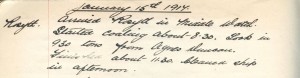 January 15th 1914.
Rayft. Arrived Rayft in Middle Watch.
Started coaling about 8.30. Took in
930 tons from Agnes Duncan.
Finished about 11.30. Cleaned ship
in afternoon.